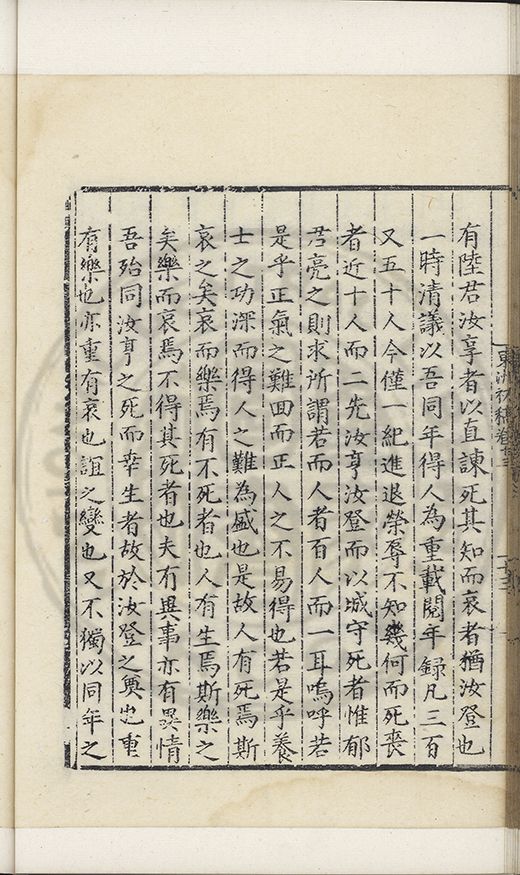 東洲初稿卷十三
有陸君汝亨者以直諫死其知而哀者猶汝登也
一時清議以吾同年得人為重載閱年錄凡三百
又五十人今僅一紀進退榮辱不知幾何而死喪
者近十人而二先汝亨汝登而以城守死者惟郁
君亮之則求所謂若而人者百人而一耳嗚呼若
是乎正氣之難回而正人之不易得也若是乎養
士之功深而得人之難為盛也是故人有死焉斯
哀之矣哀而樂焉有不死者也人有生焉斯樂之
矣樂而哀焉不得其死者也夫有異事亦有異情
吾殆同汝亨之死而幸生者故於汝登之奠也重
有樂也亦重有哀也誼之變也又不獨以同年之